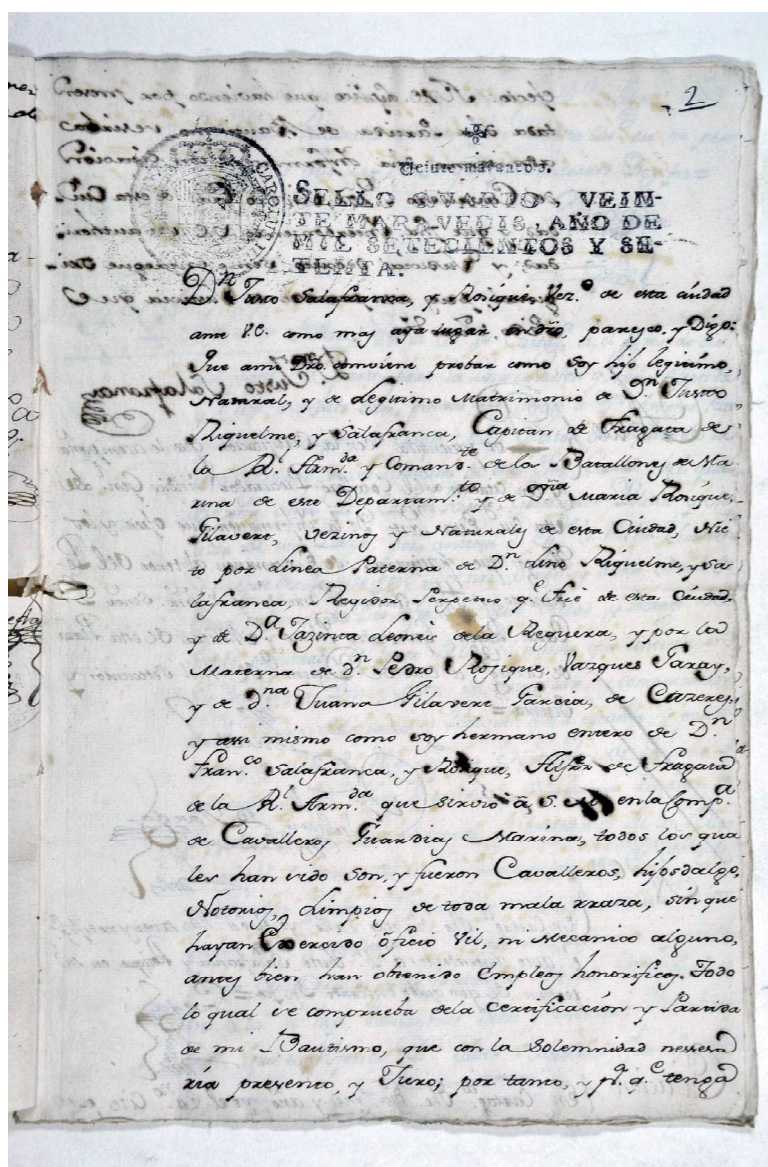 2
Veinte maravedis.
SELLO QUARTO, VEIN-
TE MARAVEDIS, AÑO DE
MIL SETECIENTOS Y SE-
TENTA.
Dn. Justo Salafranca, y Rosique, Vez.o de esta ciudad
ante V.S. como mas aya lugar en dro, paresco, y Digo:
Que ami Dro. comviene probar como soy hijo legitimo,
Natural, y de Legitimo Matrimonio de Dn. Justo
Riquelme, y Salafranca, Capitan de Fragata de
la Rl. Arm.da y Comand.te de los Batallones de Ma
rina de este Departam.to y de Dña Maria Rosique,
Gilavert, vezinos y Naturales de esta Ciudad, Nie
to por Linea Paterna de Dn. Lino Riquelme, y Sa
lafranca, Regidor, Perpetuo q.e fue de esta Ciudad,
y de D.a Jazinta Leoneis de la Reguera, y por la
Materna de dn. Pedro Rosique, Vazques Garay,
y de d.na Juana Gilavert Garcia, de Cazeres,
y assi mismo como soy hermano entero de Dn.
Fran.co Salafranca, y Rosique, Alfez de Fragata
de la Rl. Arm.da que sirvio a S. M. en la Comp.a
de Cavalleros Guardias Marina, todos los qua
les han sido son, y fueron Cavalleros, hijosdalgo,
Notorios, Limpios de toda mala rraza, sin que
hayan Exercido oficio Vil, ni Mecanico alguno,
antes bien han obtenido Empleos honorificos. Todo
lo qual se comprueba dela Certificación y Partida
de mi Bautismo, que con la Solemnidad nessesa
ria presento, y Juro; por tanto, y p.a q.e tenga